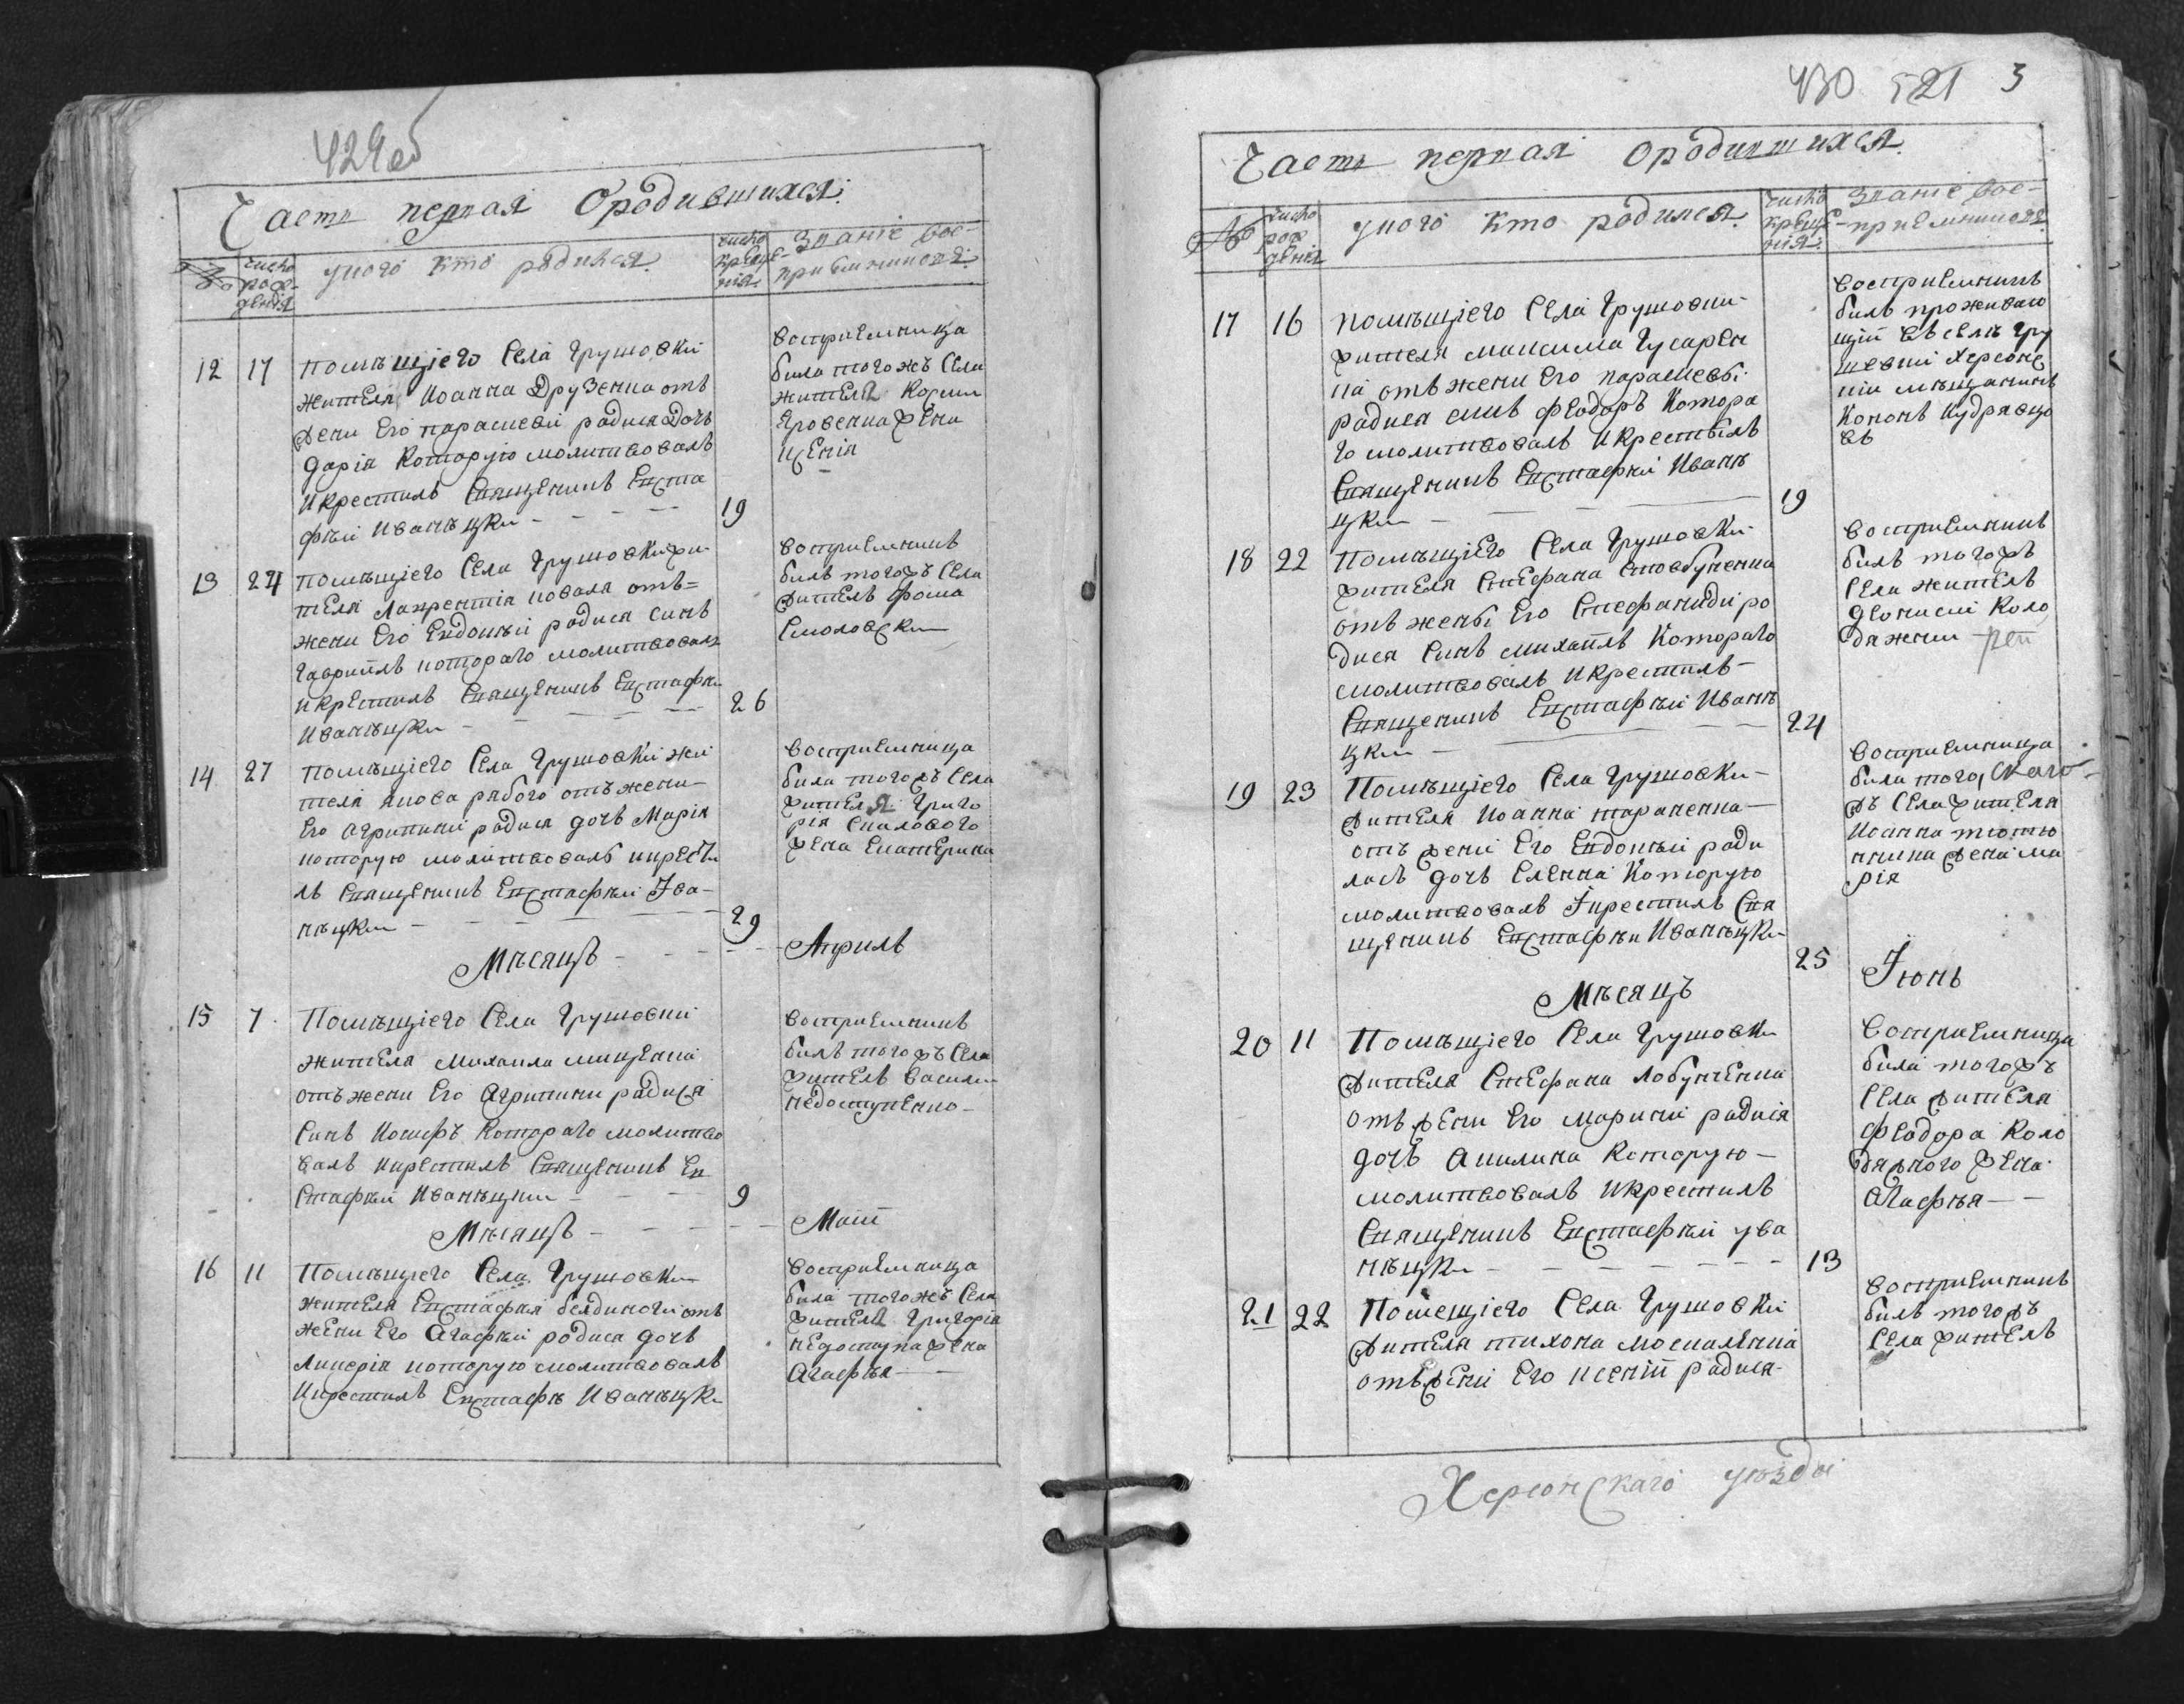 429об
Часть первая Ородившихся:
№ число рож-дения
у кого кто родился.
число креще-ния
Званіе вос-приемниковъ.
12 17
помѣщіего Села Грушовки
жителя Иоанна Друзенка отъ
жени Его параскеви родися Дочь
Дарія Которую молитвовалъ
Икрестилъ Священикъ Евста
фѣй Иванѣцки
19
восприемница
била тогожъ Села
жителя Косми
Яровенка жена
Ксенія
13 24
помѣщіего Села Грушовки жи
теля Лаврентія Коваля отъ=
жени Его Евдокѣи родися синъ
Гавриїлъ котораго молитвовалъ
икрестилъ Священикъ Евстафѣ
Иванѣцки
26
восприемникъ
билъ тогожъ Села
житель Фома
Смоловски
14 27
помѣщіего Села Грушовки жи
теля Якова рябого отъ жени
Его Агрипини родися дочъ Марія
которую молитвовалъ икрести
лъ Священикъ Евстафѣй Іва-
нѣцки
29
восприемница
била тогожъ Села
жителя Григо
рія Скалового
жена Екатерина
Мѣсяцъ Априль
15 7
Помѣщіего Села Грушовки
жителя Михаила мищенка
отъ жени Его Агрипини родися
Синъ Иосифъ Котораго молитво
валъ икрестилъ Священикъ Ев
стафѣй Иванѣцки
9
восприемникъ
билъ тогожъ Села
житель Василий
недоступенко
Мѣсяцъ Маїй
16 11
Помѣщіего Села Грушовки
жителя Евстафія бездиноги отъ
жени Его Агафѣи родися дочъ
Ликерія которую молитвовалъ
Икрестилъ Евстафѣ Иванѣцки
восприемница
била тогожъ Села
жителя Григорія
недоступа жена
Агафѣя
430 521 3
Часть первая Ородившихся
№ число рож-денія
у кого кто родился
число креще-нія
Званіе вос-приемниковъ
17 16
помѣщіего Села Грушовки
жителя максима Гусарен
ка отъ жени Его параскевы
родися синъ феодоръ Котора
го молитвовалъ Икрестылъ
Священикъ Евстафѣй Иванѣ
цки
19
восприемникъ
билъ проживаю
щій въ селѣ Гру
шевки Херсонс
кій мѣщанинъ
Кононъ Кудрявцо
въ
18 22
Помѣщіего Села Грушовки
жителя Стефана Стовбуненка
отъ жены Его Стефаниди ро
дися Синъ михаїлъ Котораго
молитвовалъ Икрестилъ
Священикъ Евстафѣй Иванѣ
цки
24
восприемникъ
билъ тогожъ
Села житель
Дионисій Коло
дяжни
19 23
Помѣщіего Села Грушовки
жителя Иоанна тараненка
отъ жени Его Евдокѣи роди
лась дочъ Еленна Которую
молитвовалъ Ікрестилъ Свя
щеникъ Евстафѣи Иванѣцки
25
восприемница
била того
жъ Села жителя
Иоанна тютю
нника жена ма
рія
Мѣсяцъ Іюнь
20 11
Помѣщіего Села Грушовки
жителя Стефана Лобунченка
отъ жени Его Марини родися
дочъ Акилина Которую
молитвовалъ Икрестилъ
Священикъ Евстафѣй Ива
нѣцки
13
восприемница
била тогожъ
Села жителя
Феодора Коло
дяжного жена
Агафѣя
21 22
Помещіего Села Грушовки
жителя тихона москаленка
отъ жени Его Ксеній родися
восприемникъ
билъ тогожъ
Села житель
Херсонскаго уѣзда